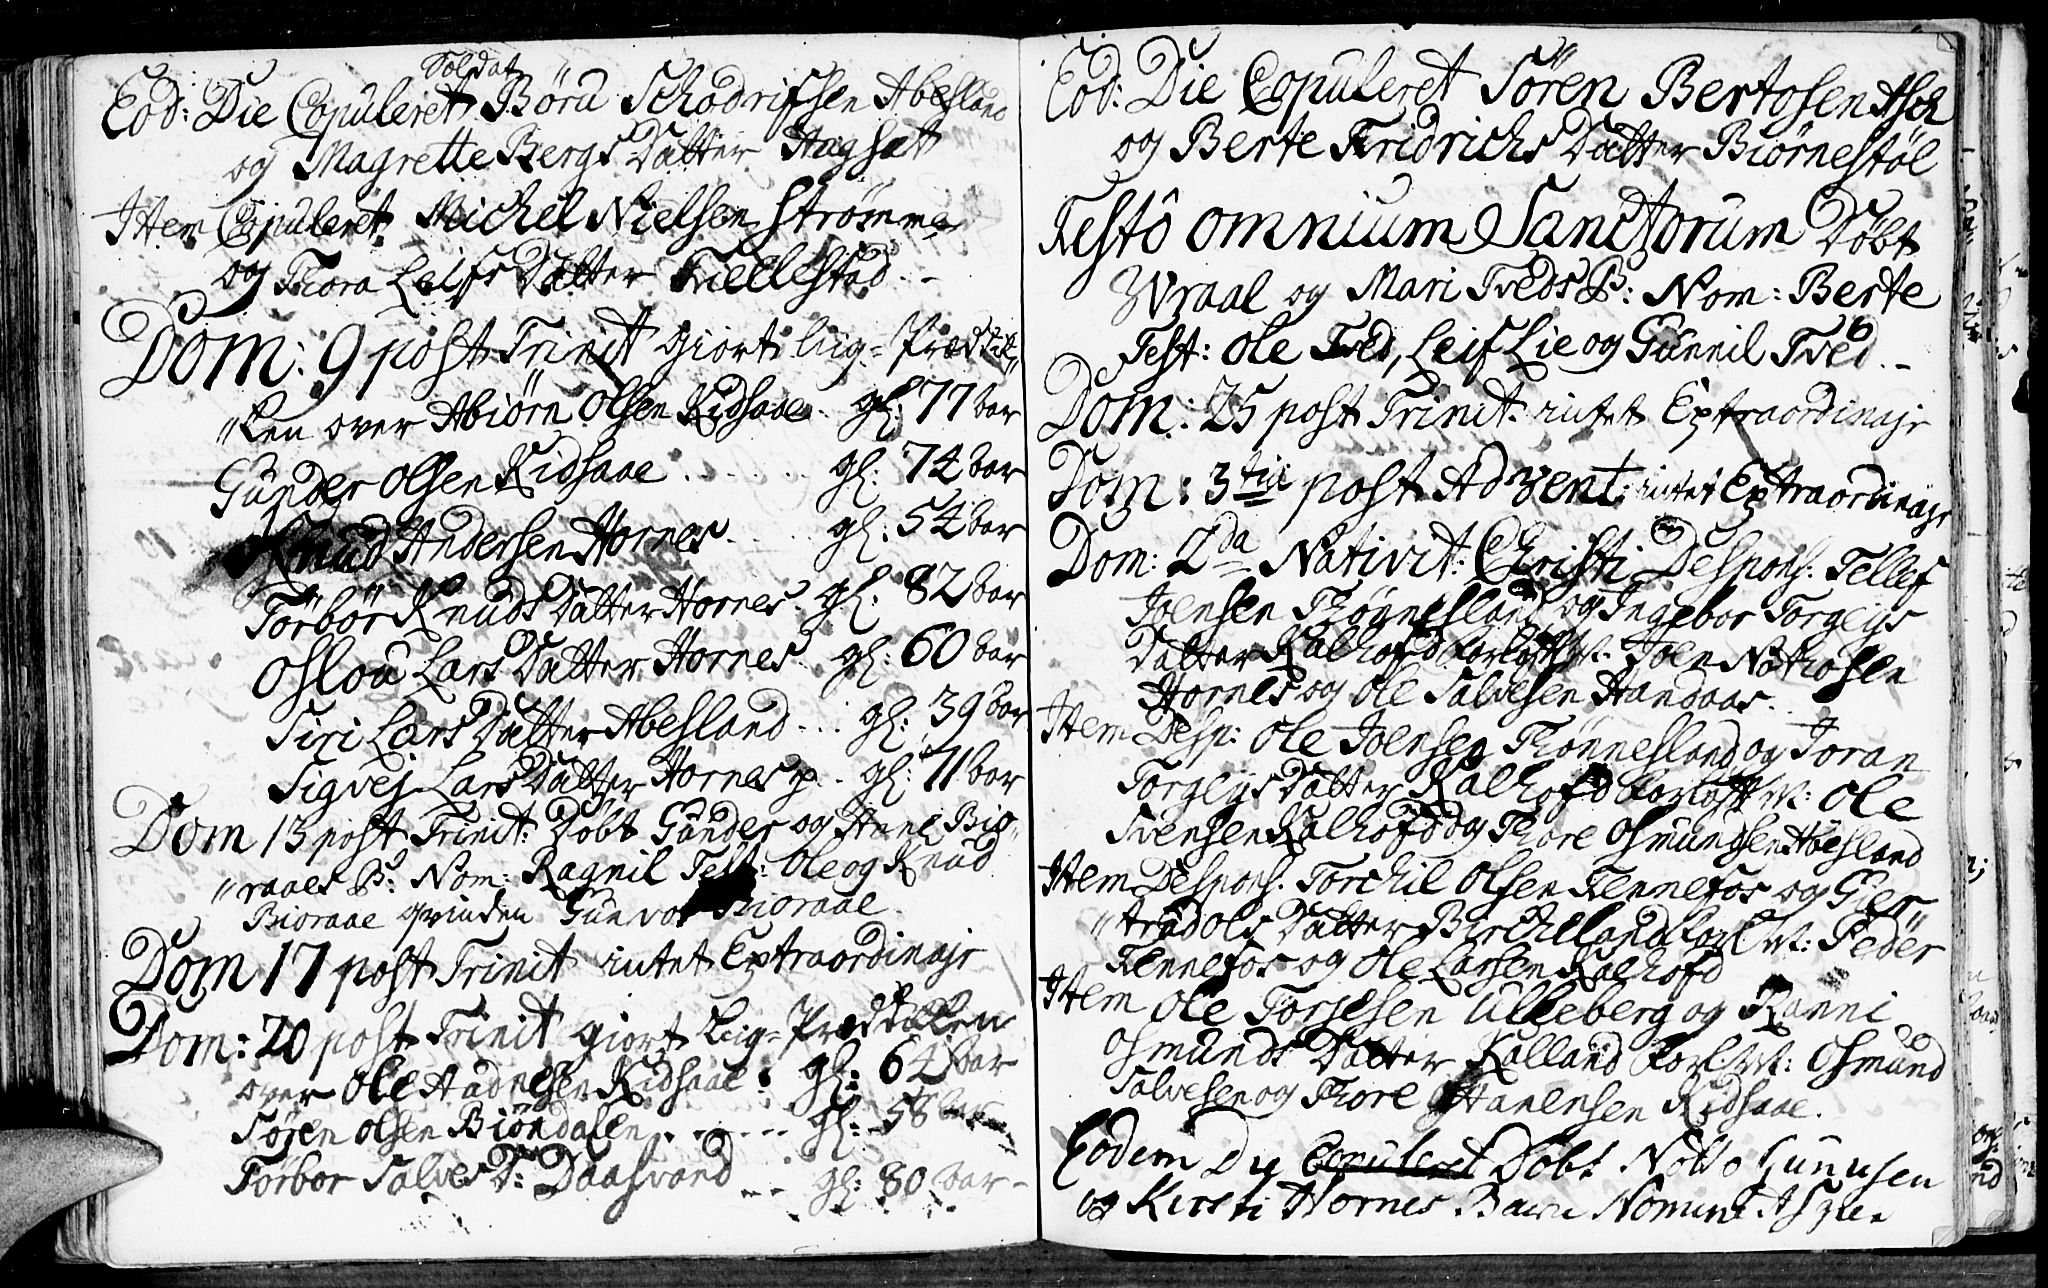 Soldat
Eod: Die Copuleret Böru Schadrifsen Abesland
og Magrette Bergs Datter Hagsat
Item Copuleret Michel Nielsen Strømme
og Thora Leifs Datter Tvedestad
Dom: 9 post Trinit giort Liig-Præd
ken over Abiörn Olsen Kidsaae gl: 77 aar
Gunder Olsen Kidsaae . . . gl: 74 aar
Knud Andersen Hornes . . gl: 54 aar
Törbör Knuds Datter Hornes. gl: 82 aar
Oslou Lars Datter Hornes. gl: 60 aar
Siri Lars Datter Abesland . . . gl: 39 aar
Sigvej Lars Datter Hornes . gl: 71 aar
Dom 13 post Trinit: Döbt Gunder og Anne Bio-
"raaes B: Nom: Ragnil Test: Ole og Knud
Bioraae qvinden Gunvor Bioraae
Dom 17 post Trinit intet Extraordinajr
Dom: 20 post Trinit giort Liig-Prædikken
over Ole Aadnesen Kidsaae . gl: 64 aar
Sören Olsen Biöndalen . . . . . . gl: 58 aar
Törbor Salves D: Daasvand - - gl: 80 aar -
Eod: Die Copuleret Sören Bertosen Asch
og Berte Fridrichs Datter Biørnestöl
Festô omnium Sanctorum Döbt
Wraal og Mari Tveds B: Nom: Berte
Test: Ole Tved, Leif Lie og Gunnil Tved. -
Dom: 25 post Trinit: intet Extraordinajr
Dom: 3tia post Advent: intet Extraordinajr
Dom: 2da Nativit: Christi Despons: Tellef
Joensen Thønnesland og Ingebor Torgejs
Datter Kalhofd Joen Notto sen
Hornes og Ole Salvesen Haandaas.
Item Desp: Ole Joensen Thønnesland og Joran
Torgejs Datter Kalhofd W: Ole
Svensen Kalhofd og Thore Osmundsen Abesland
Item Despons. Torchil Olsen Fennefos og Gier
"trud Ols Datter Birchelland W: Peder
Fennefos og Ole Larsen Kalhofd
Item Ole Torjesen Ulleberg og Ranni
Osmunds Datter Kalland W: Osmund
Salvesen og Thore Hanensen Kidsaae.
Eodem Die Copuleret Döbt Notto Gunnsen
og Kirsti Hornes Barn Nomine